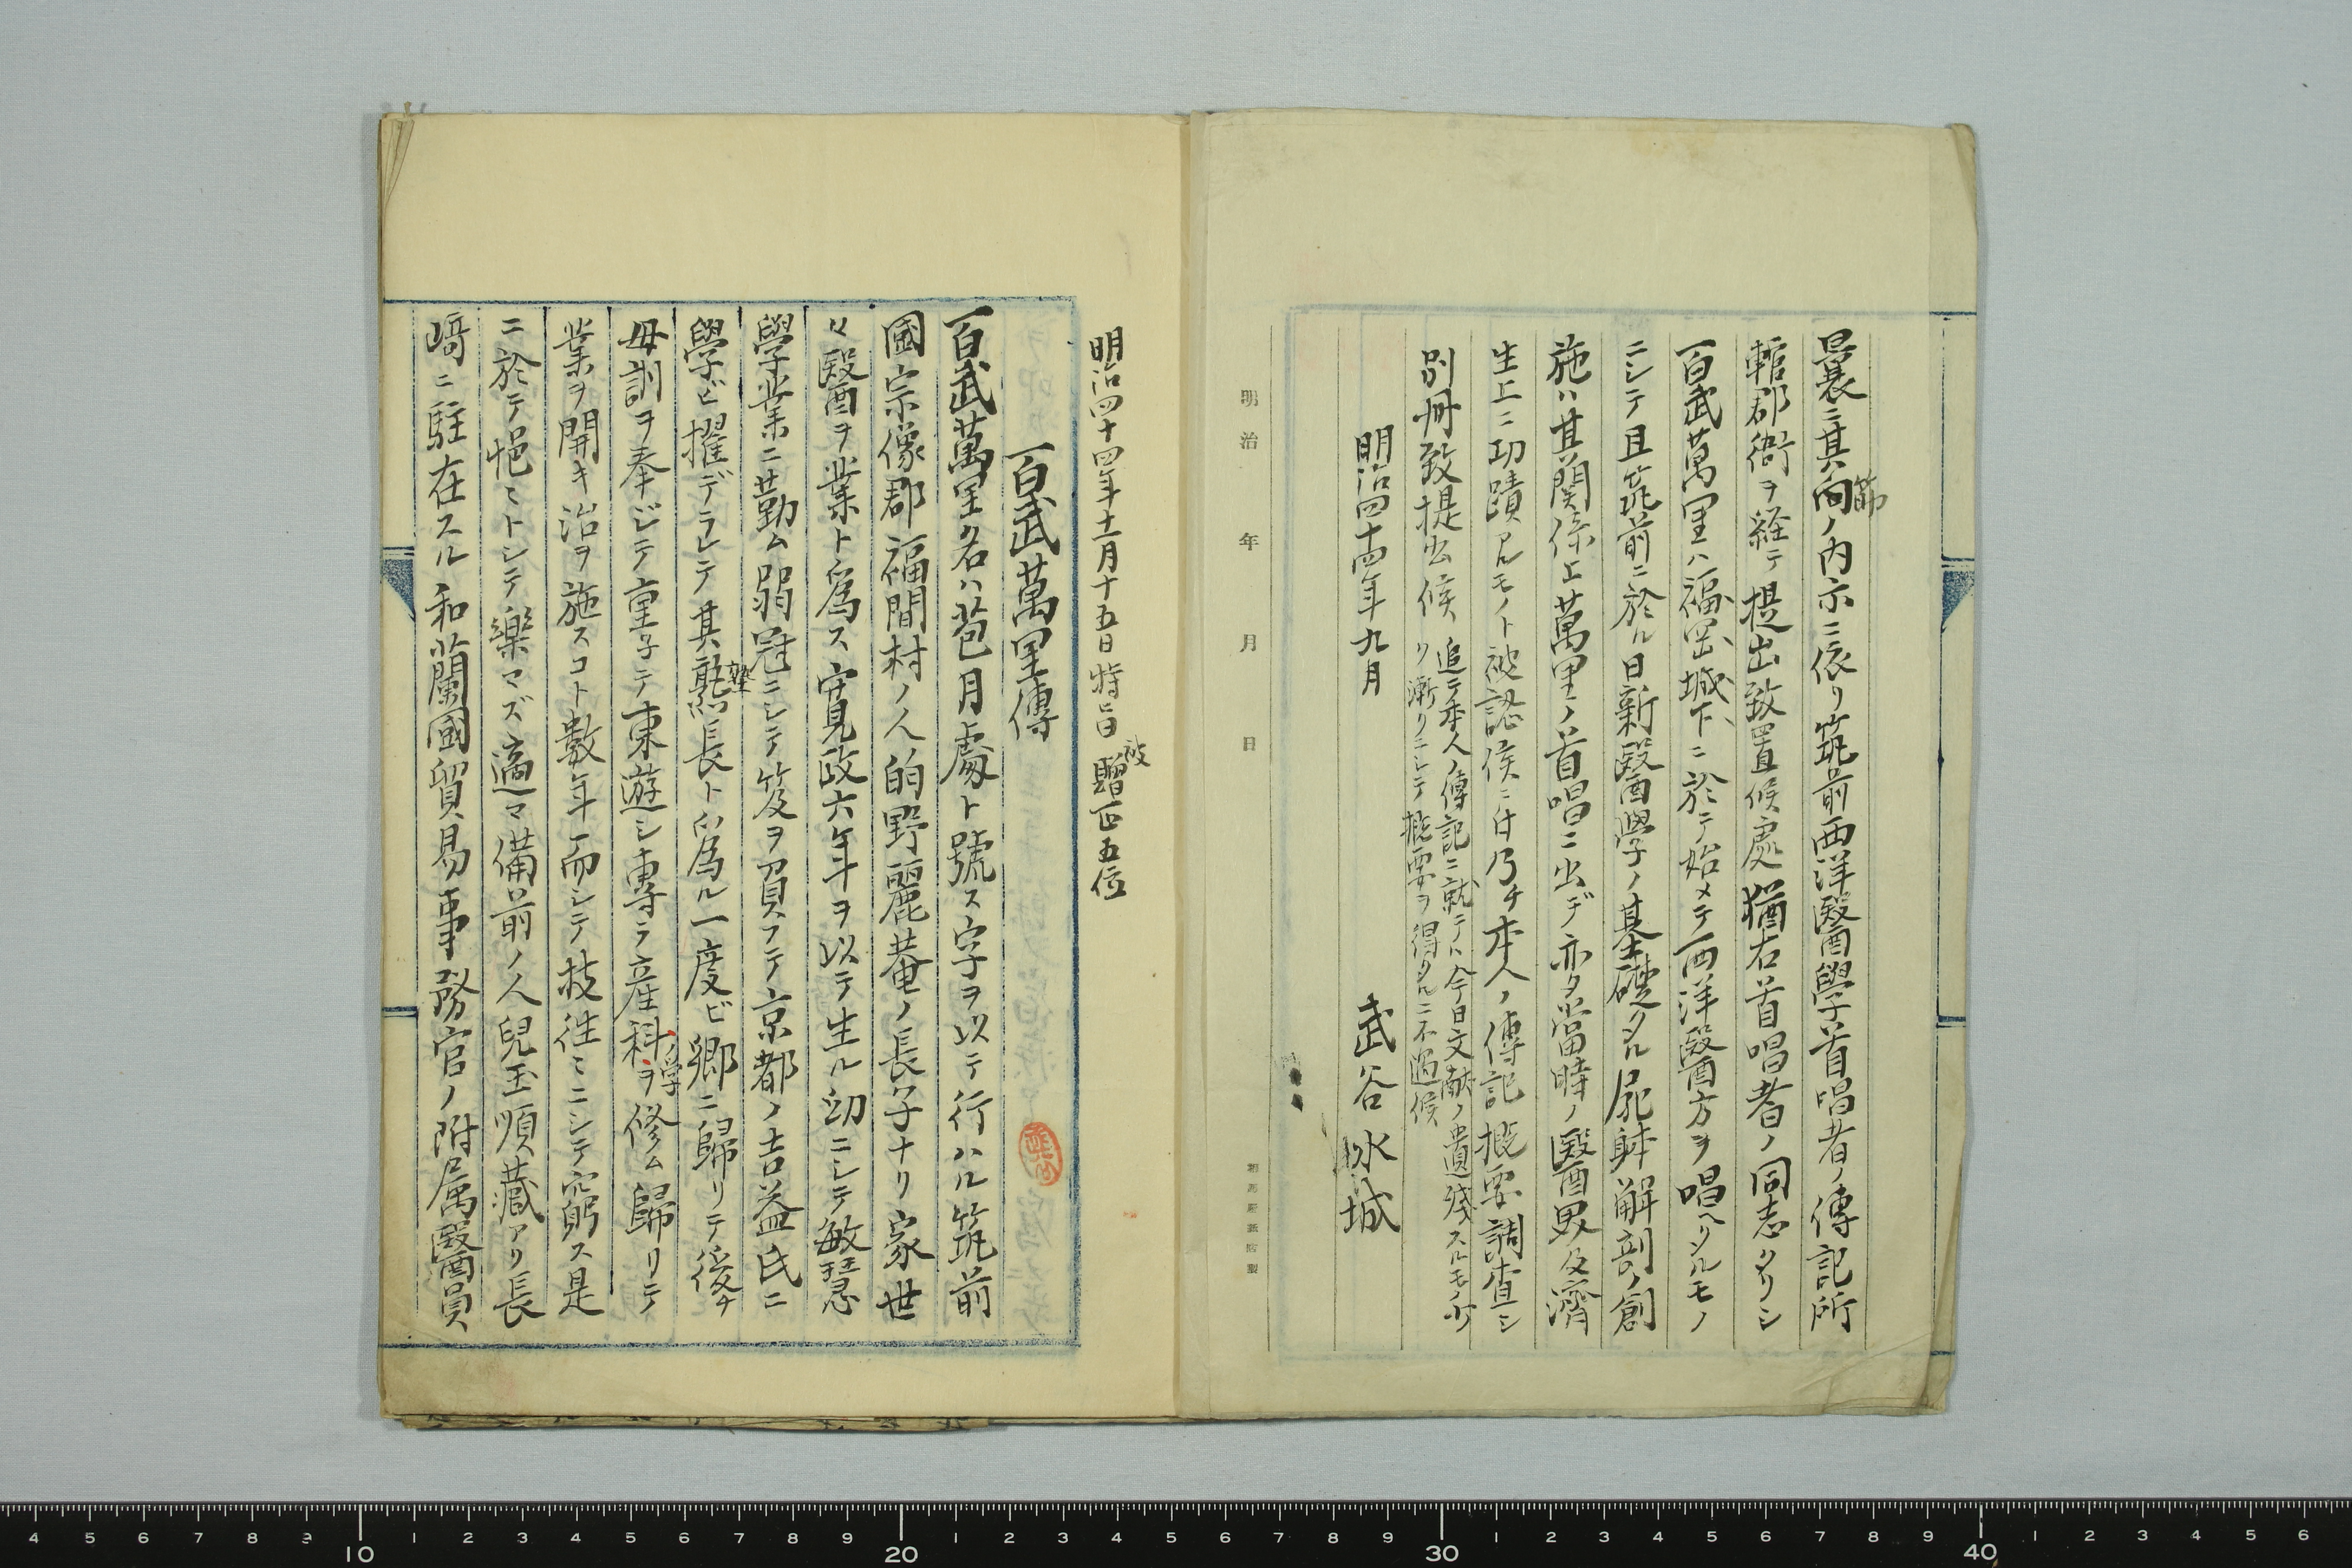 曩ニ其筋向ノ内示ニ依リ筑前西洋醫學首唱者ノ傳記所
轄郡衙ヲ経テ提出致置候處猶右首唱者ノ同志タリシ
百武萬里ハ福岡城下ニ於テ始メテ西洋醫方ヲ唱ヘタルモノ
ニシテ且筑前ニ於ル日新醫學ノ基礎タル屍躰解剖ノ創
施ハ其関係上萬里ノ首唱ニ出デ亦タ當時ノ醫男及濟
生上ニ功蹟アルモノト被認候ニ付乃チ本人ノ傳記概要調査シ
別冊致提出候
追テ本人ノ傳記ニ就テハ今日文献ノ遺残スルモノ少
リ漸クニシテ概要ヲ得タルニ不過候
明治四十四年九月
武谷水城
明治 年 月 日
明治四十四年十一月十五日特旨被贈正五位
百武萬里傳
百武萬里名ハ苞月處ト號ス字ヲ以テ行ハル筑前
國宗像郡福間村ノ人的野麗菴ノ長子ナリ家世
々醫ヲ業ト爲ス寛政六年ヲ以テ生ル幼ニシテ敏慧
學業ニ勤ム弱冠ニシテ笈ヲ負フテ京都ノ吉益氏ニ
學ビ擢デラレテ其塾長ト爲ル一度ビ郷ニ歸リテ後チ
母訓ヲ奉ジテ重子テ東遊シ專ラ産科ノ學ヲ修ム歸リテ
業ヲ開キ治ヲ施スコト數年而シテ技往々ニシテ窮ス是
ニ於テ悒々トシテ樂マズ適マ備前ノ人兒玉順藏アリ長
﨑ニ駐在スル和蘭國貿易事務官ノ附属醫員